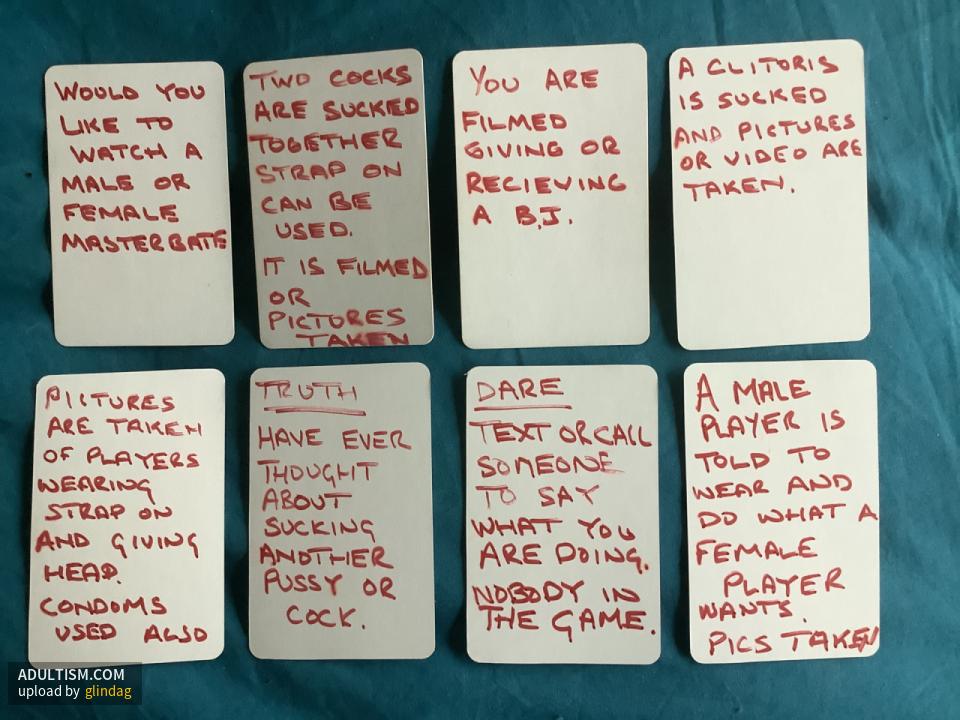 WOULD YOU
LIKE TO
WATCH A
MALE OR
FEMALE
MASTERBATE
TWO COCKS
ARE SUCKED
TOGETHER
STRAP ON
CAN BE
USED.
IT IS FILMED
OR
PICTURES
TAKEN
YOU ARE
FILMED
GIVING OR
RECIEVING
A B.J.
A CLITORIS
IS SUCKED
AND PICTURES
OR VIDEO ARE
TAKEN.
PICTURES
ARE TAKEN
OF PLAYERS
WEARING
STRAP ON
AND GIVING
HEAD.
CONDOMS
USED ALSO
TRUTH
HAVE EVER
THOUGHT
ABOUT
SUCKING
ANOTHER
PUSSY OR
COCK.
DARE
TEXT OR CALL
SOMEONE
TO SAY
WHAT YOU
ARE DOING.
NOBODY IN
THE GAME.
A MALE
PLAYER IS
TOLD TO
WEAR AND
DO WHAT A
FEMALE
PLAYER
WANTS.
PICS TAKEN
ADULTISM.COM
upload by glindag